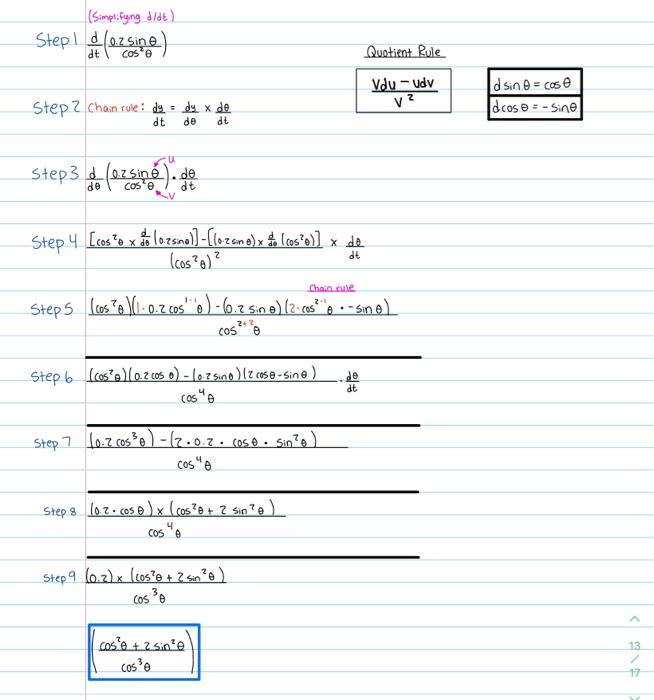 (Simplifying d/dt)
Step 1 d/dt (0.2 sin θ / cos²θ)
Quotient Rule
Vdu − udv / V²
d sin θ = cos θ
d cos θ = - sin θ
Step 2 Chain rule: dy/dt = dy/dθ × dθ/dt
Step 3 d/dθ (0.2 sin θ / cos²θ) · dθ/dt
u
v
Step 4 [cos²θ × d/dθ (0.2 sin θ)] - [(0.2 sin θ) × d/dθ (cos²θ)] / (cos²θ)² × dθ/dt
Chain rule
Step 5 (cos²θ)(1 · 0.2 cos¹⁻¹θ) - (0.2 sin θ)(2 · cos²⁻¹θ · - sin θ) / cos²⁺²θ
Step 6 (cos²θ)(0.2 cos θ) - (0.2 sin θ)(2 cos θ - sin θ) / cos⁴θ · dθ/dt
Step 7 (0.2 cos³θ) - (2 · 0.2 · cos θ · sin²θ) / cos⁴θ
Step 8 (0.2 · cos θ) × (cos²θ + 2 sin²θ) / cos⁴θ
Step 9 (0.2) × (cos²θ + 2 sin²θ) / cos³θ
(cos²θ + 2 sin²θ / cos³θ)
13
/
17